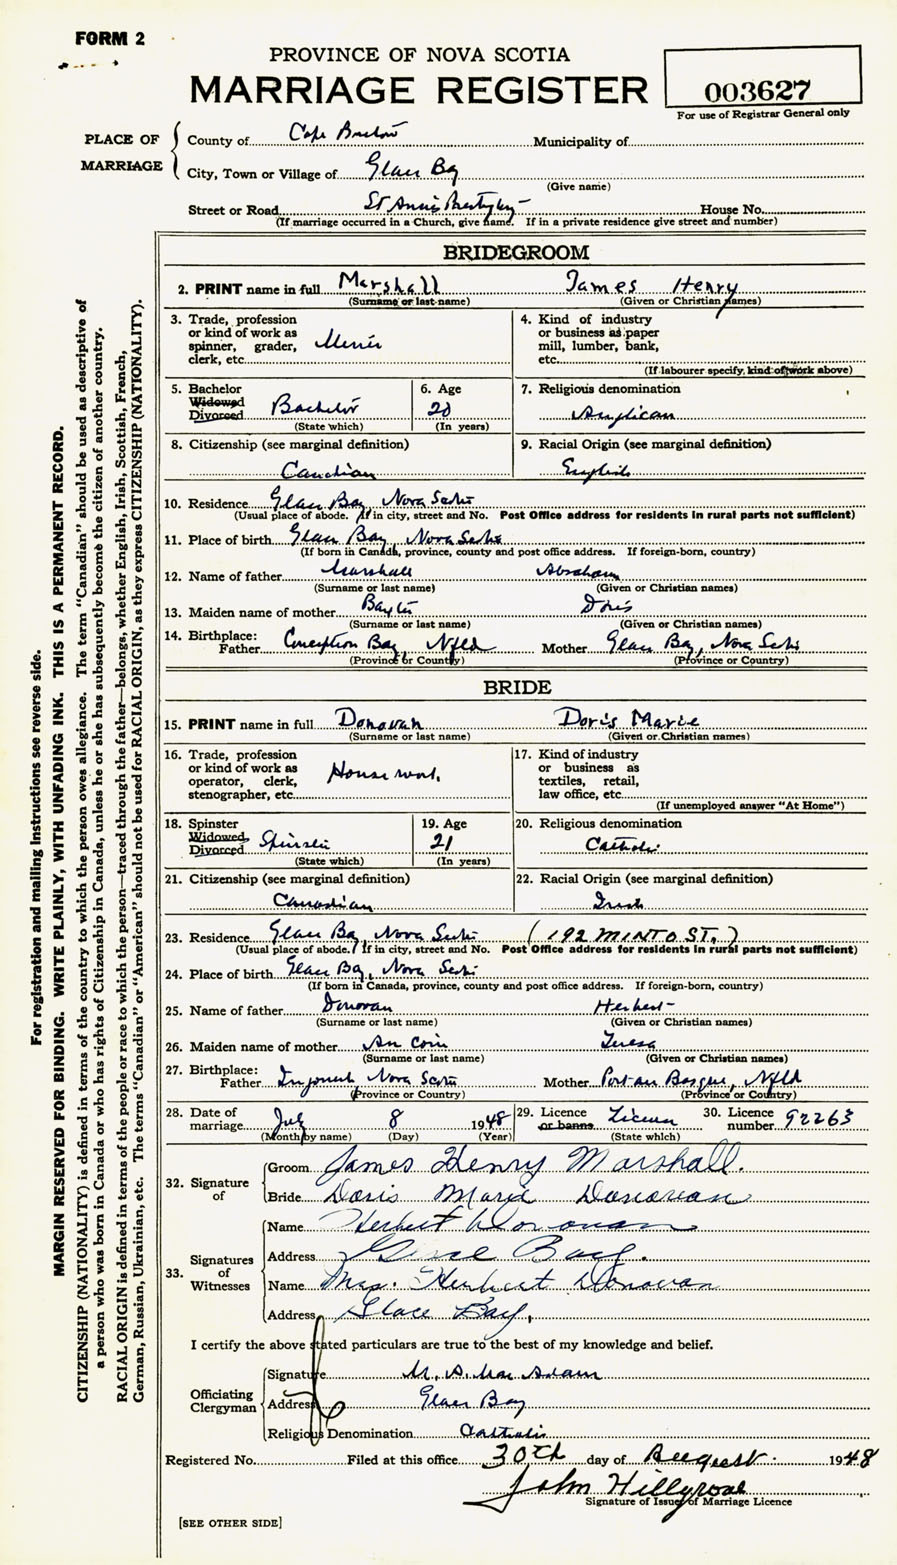 FORM 2
PROVINCE OF NOVA SCOTIA
MARRIAGE REGISTER
003627
For use of Registrar General only
PLACE OF MARRIAGE
County of Cape Breton Municipality of
City, Town or Village of Glace Bay
(Give name)
Street or Road St Anne's House No.
(If marriage occurred in a Church, give name. If in a private residence give street and number)
BRIDEGROOM
2. PRINT name in full Marshall James Henry
(Surname or last name) (Given or Christian names)
3. Trade, profession or kind of work as spinner, grader, clerk, etc. Miner
4. Kind of industry or business as paper mill, lumber, bank, etc.
(If labourer specify, kind of work above)
5. Bachelor Widowed Divorced Bachelor
(State which)
6. Age 20
(In years)
7. Religious denomination
Anglican
8. Citizenship (see marginal definition)
Canadian
9. Racial Origin (see marginal definition)
English
10. Residence Glace Bay Nova Scotia
(Usual place of abode. If in city, street and No. Post Office address for residents in rural parts not sufficient)
11. Place of birth Glace Bay, Nova Scotia
(If born in Canada, province, county and post office address. If foreign-born, country)
12. Name of father Marshall Abraham
(Surname or last name) (Given or Christian names)
13. Maiden name of mother Doris
(Surname or last name) (Given or Christian names)
14. Birthplace: Father Conception Bay, Nfld Mother Glace Bay, Nova Scotia
(Province or Country) (Province or Country)
BRIDE
15. PRINT name in full Donovan Doris Marie
(Surname or last name) (Given or Christian names)
16. Trade, profession or kind of work as operator, clerk, stenographer, etc. House work
17. Kind of industry or business as textiles, retail, law office, etc.
(If unemployed answer "At Home")
18. Spinster Widowed Divorced Spinster
(State which)
19. Age 21
(In years)
20. Religious denomination
Catholic
21. Citizenship (see marginal definition)
Canadian
22. Racial Origin (see marginal definition)
Irish
23. Residence Glace Bay Nova Scotia (192 MINTO ST.)
(Usual place of abode. If in city, street and No. Post Office address for residents in rural parts not sufficient)
24. Place of birth Glace Bay, Nova Scotia
(If born in Canada, province, county and post office address. If foreign-born, country)
25. Name of father Donovan Herbert
(Surname or last name) (Given or Christian names)
26. Maiden name of mother Teresa
(Surname or last name) (Given or Christian names)
27. Birthplace: Father Ingonish Nova Scotia Mother Port-au Basque, Nfld
(Province or Country) (Province or Country)
28. Date of marriage July 8 1948
(Month by name) (Day) (Year)
29. Licence or banns License
(State which)
30. Licence number 92263
32. Signature of
Groom James Henry Marshall.
Bride Doris Marie Donovan
33. Signatures of Witnesses
Name Herbert Donovan
Address Glace Bay.
Name Mrs. Herbert Donovan
Address Glace Bay,
I certify the above stated particulars are true to the best of my knowledge and belief.
Officiating Clergyman
Signature M. A. MacAdam
Address Glace Bay
Religious Denomination Catholic
Registered No. Filed at this office 30th day of August 1948
John Hillgrove
Signature of Issuer of Marriage Licence
[SEE OTHER SIDE]
For registration and mailing instructions see reverse side.
MARGIN RESERVED FOR BINDING. WRITE PLAINLY, WITH UNFADING INK. THIS IS A PERMANENT RECORD.
CITIZENSHIP (NATIONALITY) is defined in terms of the country to which the person owes allegiance. The term "Canadian" should be used as descriptive of
a person who was born in Canada or who has rights of Citizenship in Canada, unless he or she has subsequently become the citizen of another country.
RACIAL ORIGIN is defined in terms of the people or race to which the person—traced through the father—belongs, whether English, Irish, Scottish, French,
German, Russian, Ukrainian, etc. The terms "Canadian" or "American" should not be used for RACIAL ORIGIN, as they express CITIZENSHIP (NATIONALITY).